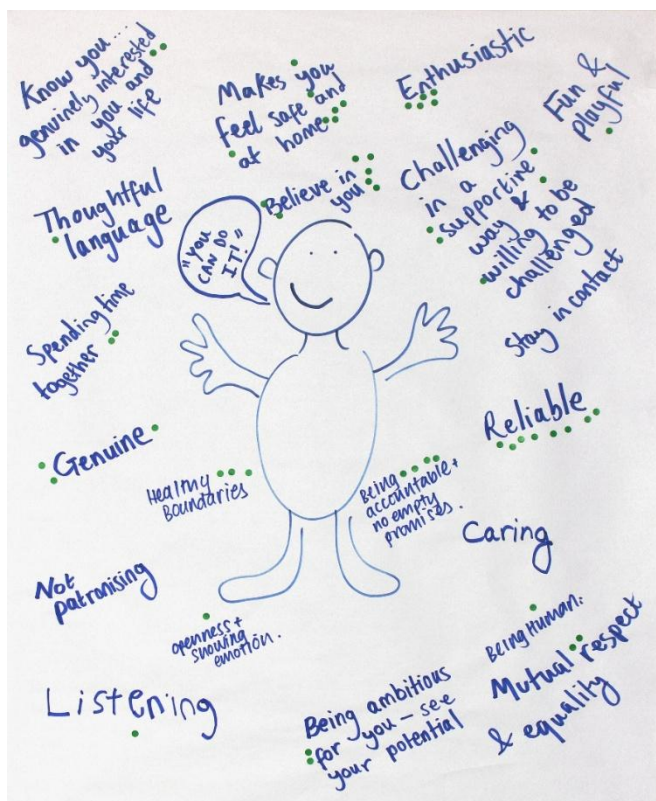 Know you...
genuinely interested
in you and
your life
Makes you
feel safe and
at home
Enthusiastic
Fun &
playful
Thoughtful
language
Believe in
you
"YOU
CAN DO
IT!"
Challenging
in a
supportive
way &
willing to be
challenged
Spending time
together
Stay in contact
Genuine
Reliable
Healthy
Boundaries
Being
accountable +
no empty
promises.
Caring
Not
patronising
openness +
showing
emotion.
Being Human.
Mutual respect
& equality
Listening
Being ambitious
for you – see
your potential